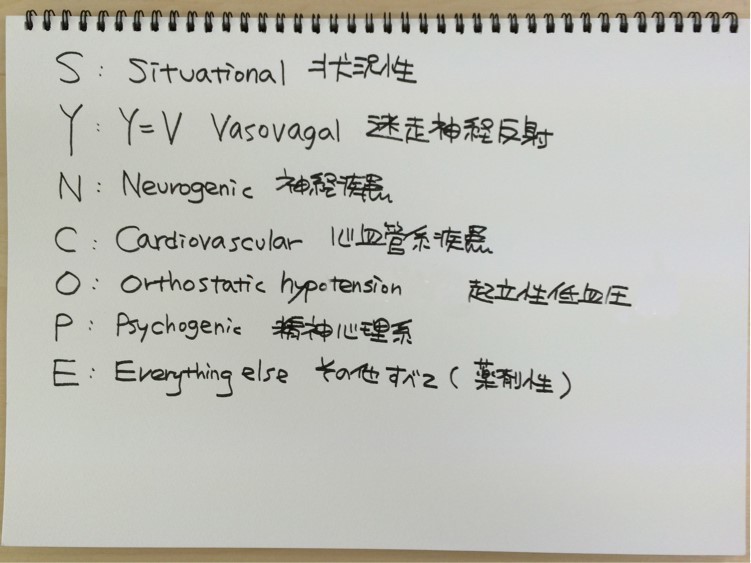 S : Situational 状況性
Y : Y=V Vasovagal 迷走神経反射
N : Neurogenic 神経疾患
C : Cardiovascular 心血管系疾患
O : Orthostatic hypotension 起立性低血圧
P : Psychogenic 精神心理系
E : Everything else その他すべて(薬剤性)